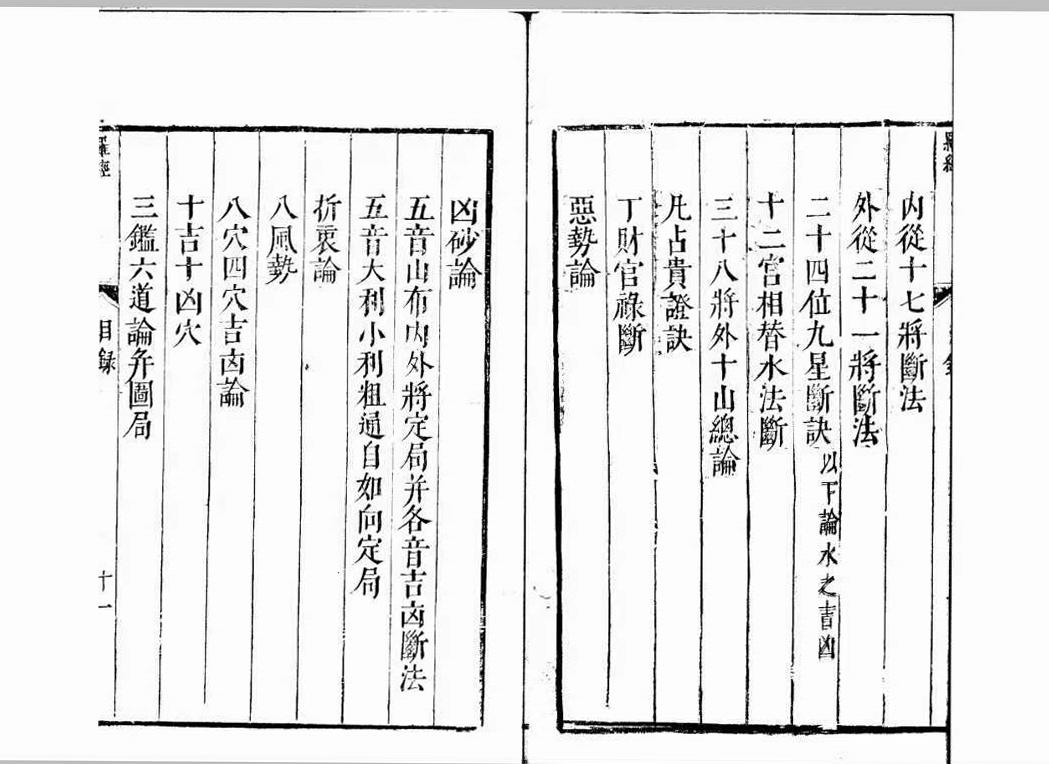 內從十七將斷法
外從二十一將斷法
二十四位九星斷訣以下論水之吉凶
十二宮相替水法斷
三十八將外十山總論
凡占貴證訣
丁財官祿斷
惡勢論
凶砂論
五音山布內外將定局并各音吉凶斷法
五音大利小利粗通自如向定局
折衷論
八風勢
八穴四穴吉凶論
十吉十凶穴
三鑑六道論并圖局
羅經
目錄
十一